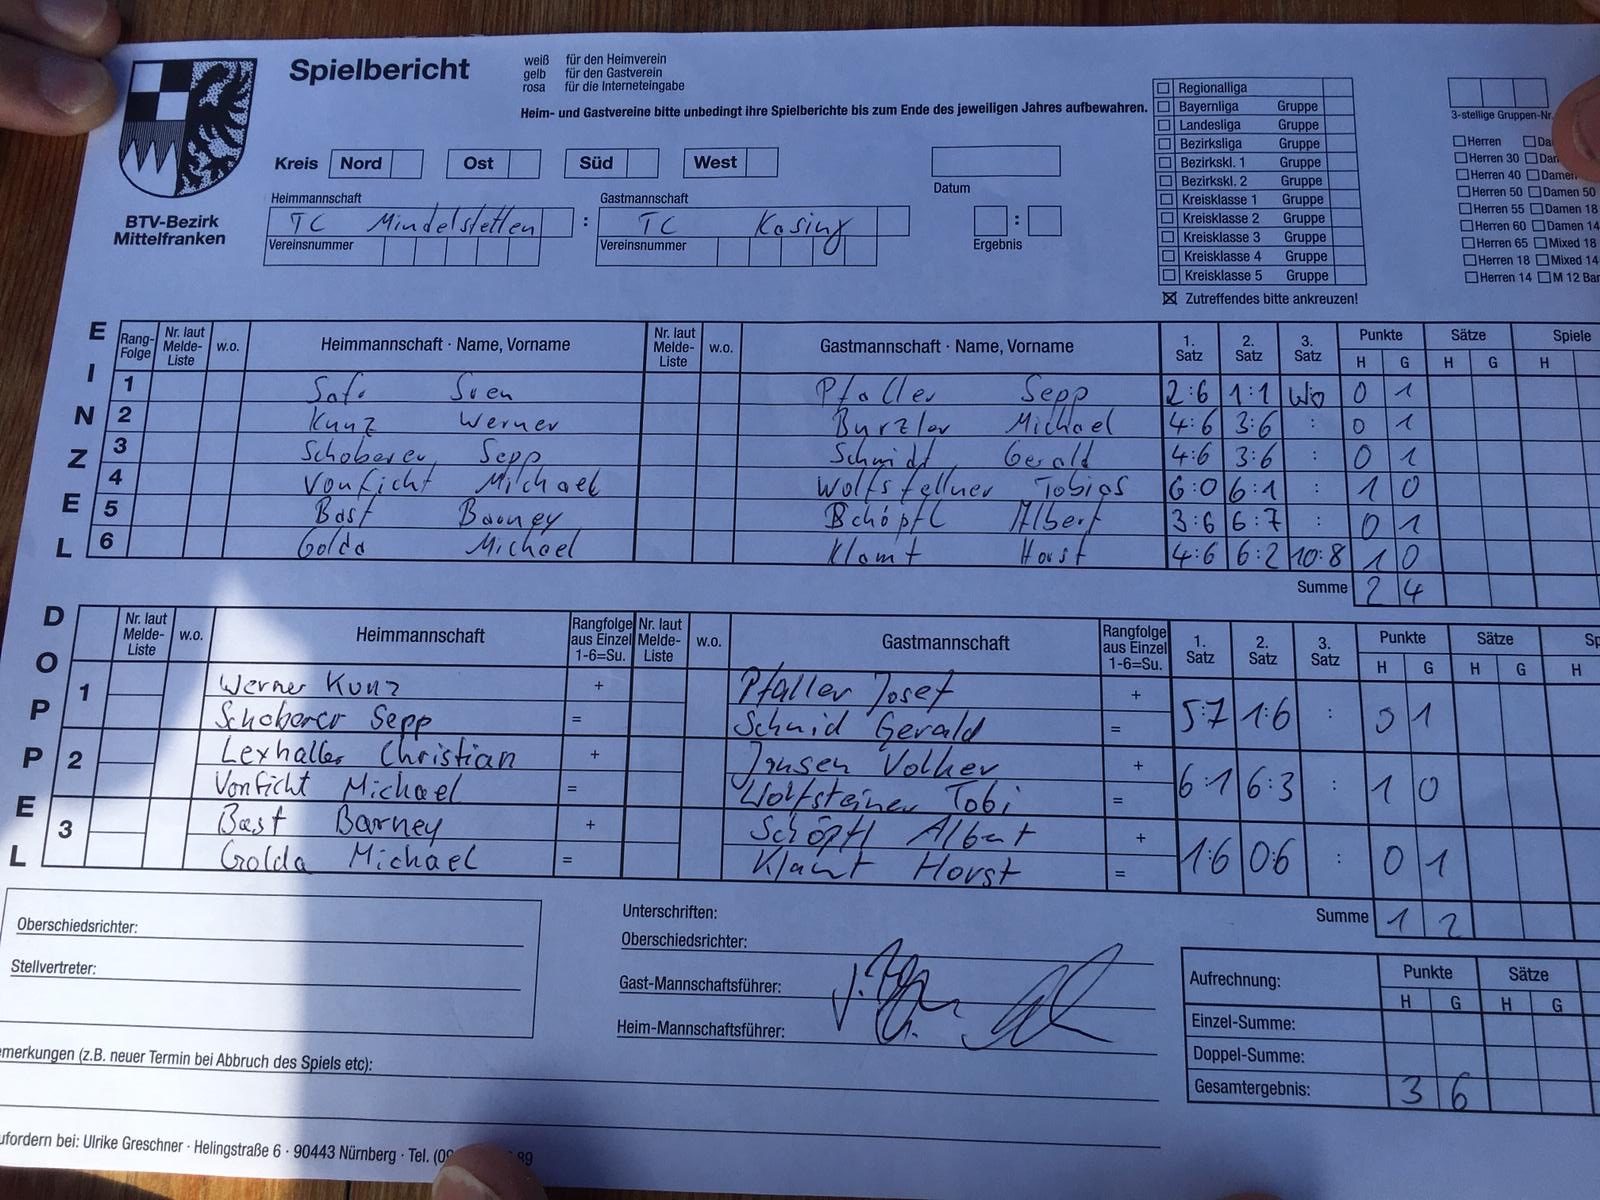 Spielbericht
weiß für den Heimverein
gelb für den Gastverein
rosa für die Interneteingabe
Heim- und Gastvereine bitte unbedingt ihre Spielberichte bis zum Ende des jeweiligen Jahres aufbewahren.
BTV-Bezirk
Mittelfranken
Kreis Nord Ost Süd West
Datum
Heimmannschaft Gastmannschaft
TC Mindelstetten : TC Kasing :
Vereinsnummer Vereinsnummer Ergebnis
Regionalliga
Bayernliga Gruppe
Landesliga Gruppe
Bezirksliga Gruppe
Bezirkskl. 1 Gruppe
Bezirkskl. 2 Gruppe
Kreisklasse 1 Gruppe
Kreisklasse 2 Gruppe
Kreisklasse 3 Gruppe
Kreisklasse 4 Gruppe
Kreisklasse 5 Gruppe
Zutreffendes bitte ankreuzen!
3-stellige Gruppen-Nr.
Herren Da
Herren 30 Dam
Herren 40 Damen
Herren 50 Damen 50
Herren 55 Damen 18
Herren 60 Damen 14
Herren 65 Mixed 18
Herren 18 Mixed 14
Herren 14 M 12 Bam
EINZEL
Rang-Folge Nr. laut Melde-Liste w.o. Heimmannschaft · Name, Vorname Nr. laut Melde-Liste w.o. Gastmannschaft · Name, Vorname 1. Satz 2. Satz 3. Satz Punkte Sätze Spiele
H G H G H
1 Sven Pfaller Sepp 2:6 1:1 Wo 0 1
2 Kunz Werner Burzler Michael 4:6 3:6 : 0 1
3 Schoberer Sepp Schmidt Gerald 4:6 3:6 : 0 1
4 Vonficht Michael Wolfsfellner Tobias 6:0 6:1 : 1 0
5 Bast Barney Schöpfl Albert 3:6 6:7 : 0 1
6 Golda Michael Klamt Horst 4:6 6:2 10:8 1 0
Summe 2 4
DOPPEL
Nr. laut Melde-Liste w.o. Heimmannschaft Rangfolge aus Einzel 1-6=Su. Nr. laut Melde-Liste w.o. Gastmannschaft Rangfolge aus Einzel 1-6=Su. 1. Satz 2. Satz 3. Satz Punkte Sätze Sp
H G H G H
1 Werner Kunz + Pfaller Josef + 5:7 1:6 : 0 1
Schoberer Sepp = Schmid Gerald =
2 Lexhaller Christian + Jansen Volker + 6:1 6:3 : 1 0
Vonficht Michael = Wolfsteiner Tobi =
3 Bast Barney + Schöpfl Albert + 1:6 0:6 : 0 1
Golda Michael = Klamt Horst =
Summe 1 2
Oberschiedsrichter:
Stellvertreter:
Unterschriften:
Oberschiedsrichter:
Gast-Mannschaftsführer:
Heim-Mannschaftsführer:
Aufrechnung: Punkte Sätze
H G H G
Einzel-Summe:
Doppel-Summe:
Gesamtergebnis: 3 6
emerkungen (z.B. neuer Termin bei Abbruch des Spiels etc):
ufordern bei: Ulrike Greschner · Helingstraße 6 · 90443 Nürnberg · Tel. (09 89